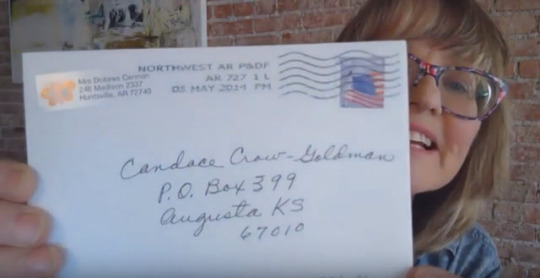 NORTHWEST AR P&DF
AR 727 1 L
05 MAY 2014 PM
Mrs Dolores Cannon
246 Madison 2337
Huntsville, AR 72740
Candace Craw-Goldman
P.O. Box 399
Augusta KS
67010